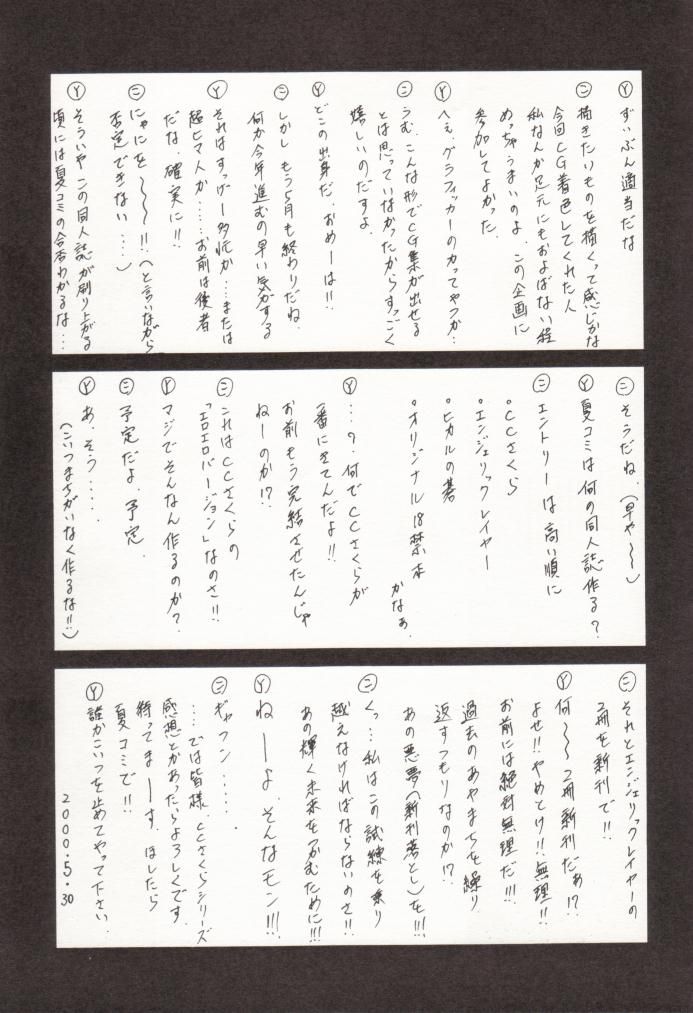 Ⓨ ずいぶん適当だな
㊁ 描きたいものを描くって感じかな
今回CG着色してくれた人
私なんか足元にもおよばない程
めっちゃうまいのよ、この企画に
参加してよかった、
Ⓨ へぇ、グラフィッカーのカってやつか…
㊁ うむ、こんな形でCG集が出せる
とは思っていなかったからすっごく
嬉しいのだすよ、
Ⓨ どこの出身だ、おめーは!!
㊁ しかし もう5月も終わりだね、
何か今年進むの早い気がする
Ⓨ それはすっげー多忙か…または
超ヒマ人か……お前は後者
だな、確実に!!
㊁ にゃにを〜〜〜!!(と言いながら
否定できない……)
Ⓨ そういや この同人誌が刷り上がる
頃には夏コミの合否わかるな…
㊁ そうだね、(早や〜〜)
Ⓨ 夏コミは何の同人誌作る?
㊁ エントリーは高い順に
•CCさくら
•エンジェリックレイヤー
•ヒカルの碁
•オリジナル18禁本
かなぁ、
Ⓨ …?、何でCCさくらが
一番にきてんだよ!!
お前もう完結させたんじゃ
ねーのか!?
㊁ これはCCさくらの
「エロエロバージョン」なのさ!!
Ⓨ マジでそんなん作るのか?
㊁ 予定だよ、予定、
Ⓨ あ、そう……
(こいつまちがいなく作るな!!)
㊁ それとエンジェリックレイヤーの
2冊を新刊で!!
Ⓨ 何〜〜2冊新刊だぁ!?
よせ!!やめとけ!!無理!!
お前には絶対無理だ!!!
過去のあやまちを繰り
返すつもりなのか!?
あの悪夢(新刊落とし)を!!!
㊁ くっ…私はこの試練を乗り
越えなければならないのさ!!
あの輝く未来をつかむために!!!
Ⓨ ねーーよ そんなモン!!!
㊁ ギャフン……、
…では皆様、CCさくらシリーズ
感想とかあったらよろしくです、
待ってまーす、ほしたら
夏コミで!!
Ⓨ 誰かこいつを止めてやって下さい、
2000.5.30